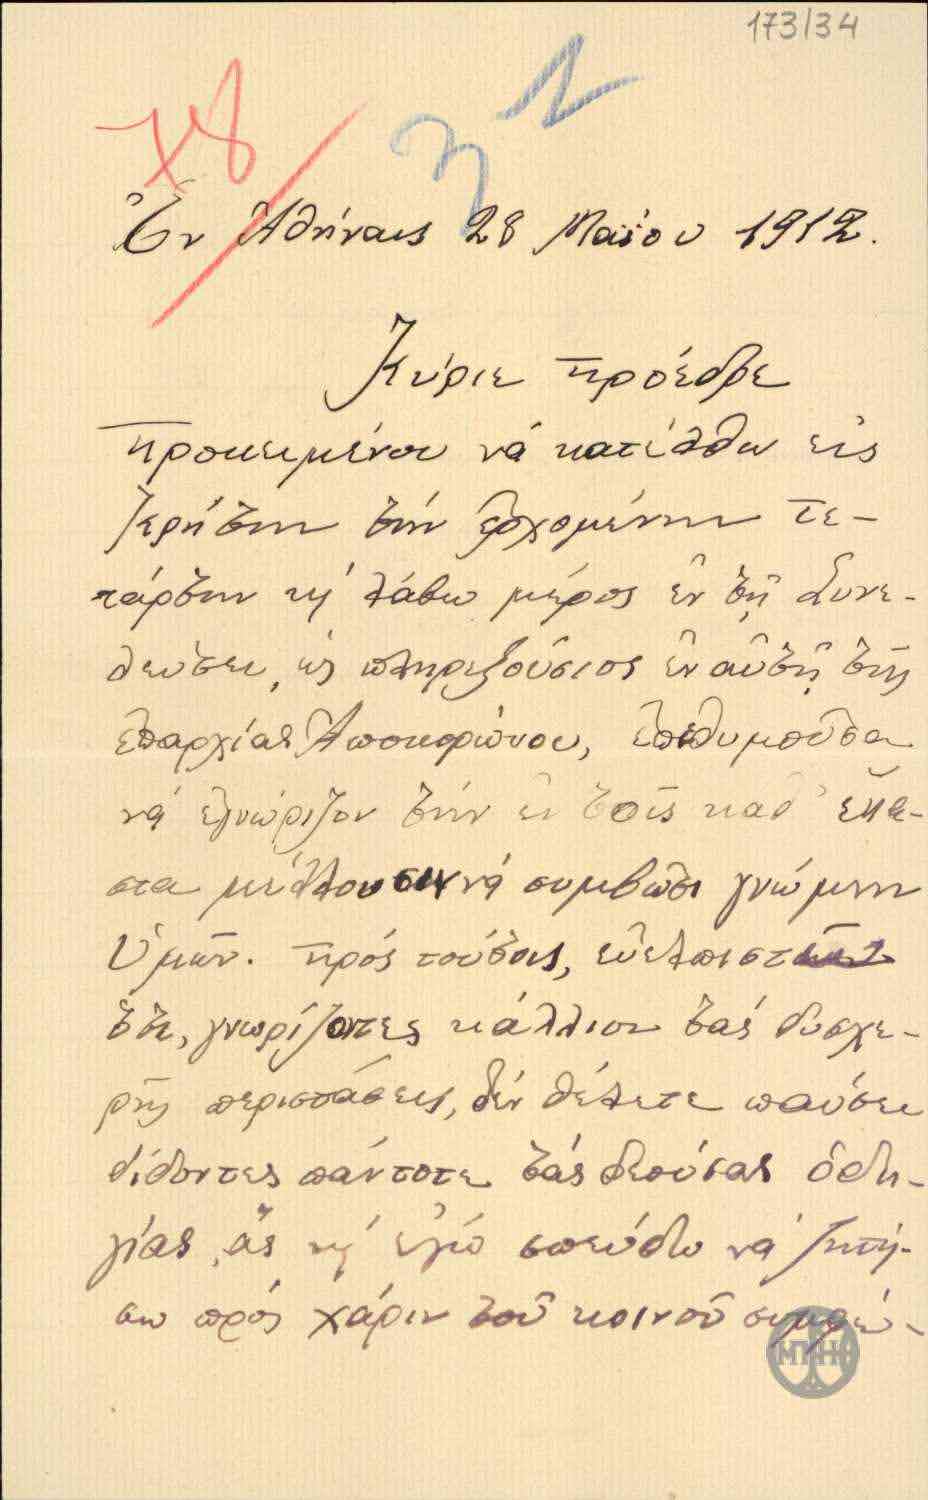 173/34
78
32
Ἐν Ἀθήναις 28 Μαΐου 1912.
Κύριε Πρόεδρε
Προκειμένου νά κατέλθω εἰς
Κρήτην τήν ἐρχομένην Τε-
τάρτην κή λάβω μέρος ἐν τῇ Συνε-
λεύσει, ὡς πληρεξούσιος ἐν αὐτῇ τῆς
ἐπαρχίας Ἀποκορώνου, ἐπεθυμοῦσα
νά ἐγνώριζον τήν ἐν τοῖς καθ' ἕκα-
στα μέλλουσιν νά συμβῶσι γνώμην
Ὑμῶν. Πρός τούτοις, εὐελπιστῶ
ὅτι, γνωρίζοντες κάλλιον τάς δυσχε-
ρεῖς περιστάσεις, δέν θέλετε παύσει
δίδοντες πάντοτε τάς δεούσας ὁδη-
γίας, ἅς κή ἐγώ σπεύδω νά ζητή-
σω πρός χάριν τοῦ κοινοῦ συμφέ-